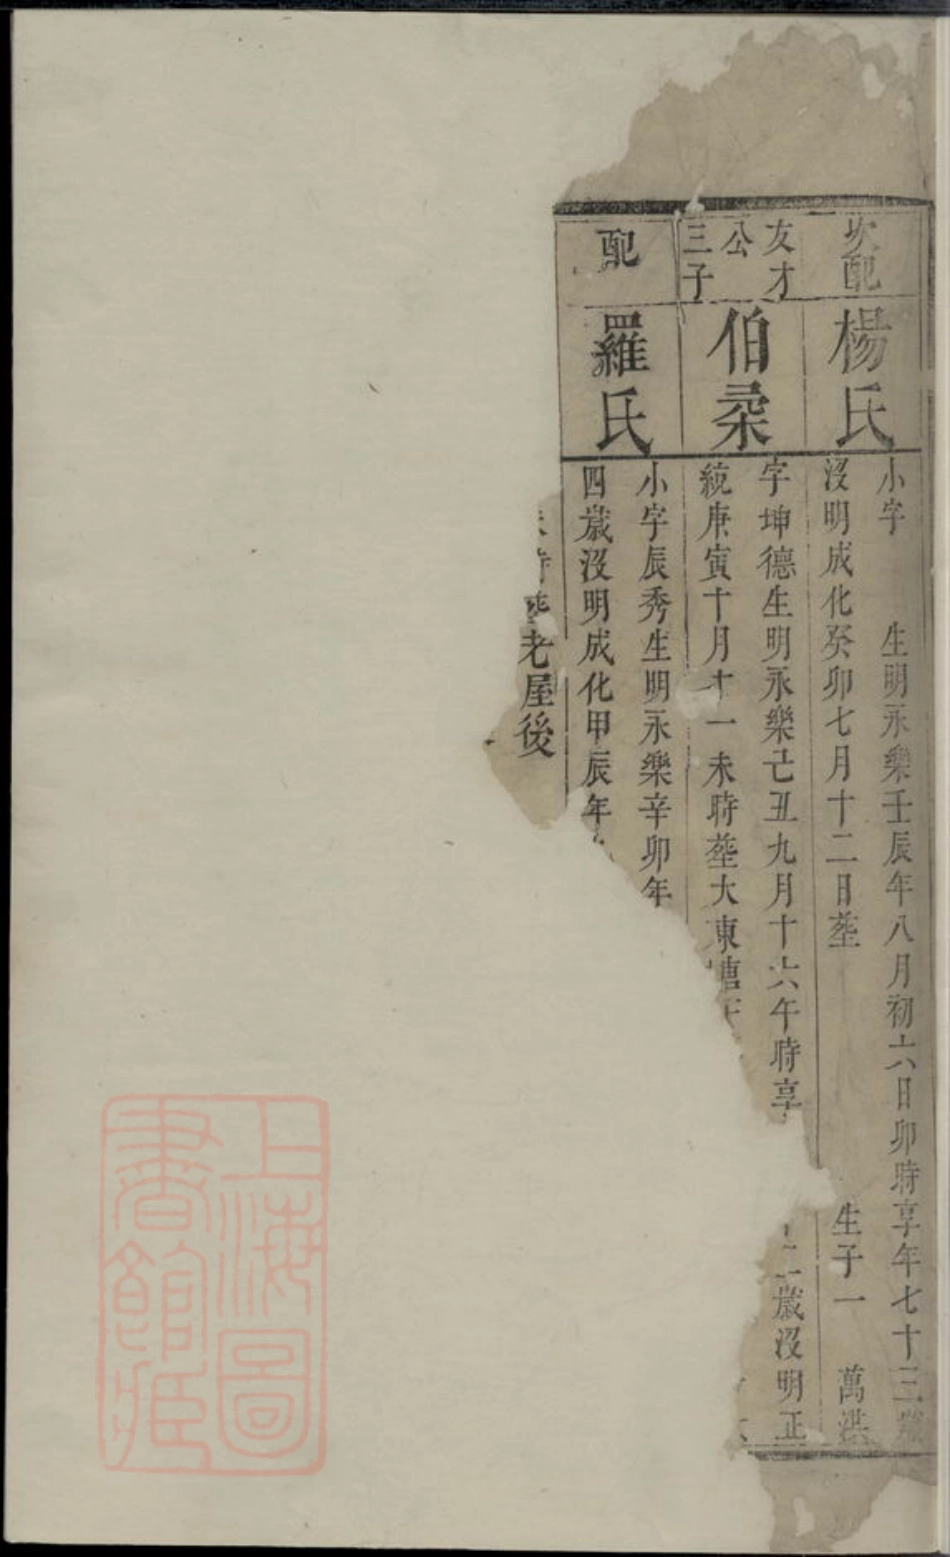 次配
楊氏
小字 生明永樂壬辰年八月初六日卯時享年七十三歲
沒明成化癸卯七月十二日塟 生子一 萬洪
友才
公
三子
伯桑
字坤德生明永樂己丑九月十六午時享
二歲沒明正
統庚寅十月十一未時塟大東
配
羅氏
小字辰秀生明永樂辛卯年
四歲沒明成化甲辰年
老屋後
上海圖
書館藏